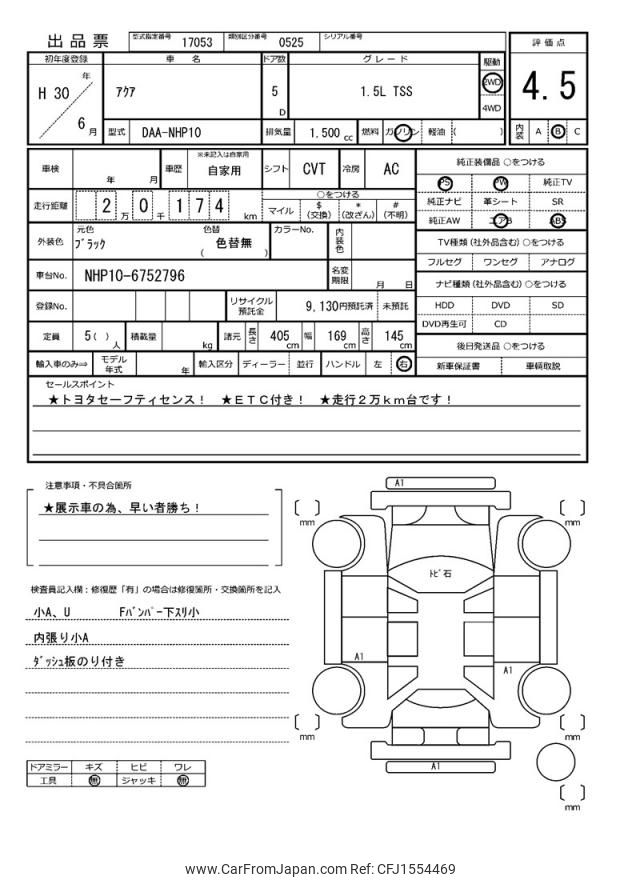 出品票 型式指定番号 17053 類別区分番号 0525 シリアル番号
初年度登録 車 名 ドア数 グレード 駆動 評価点
H 30 年 6 月 アクア 5 D 1.5L TSS 2WD 4WD 4.5
型式 DAA-NHP10 排気量 1.500 cc 燃料 ガソリン 軽油 ( ) 内装 A B C
車検 年 月 車歴 ※未記入は自家用 自家用 シフト CVT 冷房 AC 純正装備品 ○をつける
PS PW 純正TV
走行距離 2 万 0 千 1 7 4 km ○をつける
マイル $(交換) *(改ざん) #(不明)
純正ナビ 革シート SR
純正AW エアB ABS
外装色 元色 ブラック 色替 ( 色替無 ) カラーNo. 内装色
TV種類 (社外品含む) ○をつける
フルセグ ワンセグ アナログ
車台No. NHP10-6752796 名変期限 月 日
ナビ種類 (社外品含む) ○をつける
登録No. リサイクル預託金 9,130円預託済 未預託
HDD DVD SD
DVD再生可 CD
定員 5( ) 人 積載量 kg 諸元 長さ 405 cm 幅 169 cm 高さ 145 cm
後日発送品 ○をつける
輸入車のみ⇒ モデル年式 年 輸入区分 ディーラー 並行 ハンドル 左 右 新車保証書 車輌取説
セールスポイント
★トヨタセーフティセンス! ★ETC付き! ★走行2万km台です!
注意事項・不具合箇所
★展示車の為、早い者勝ち!
検査員記入欄:修復歴「有」の場合は修復箇所・交換箇所を記入
小A、U Fバンパー下スリ小
内張り小A
ダッシュ板のり付き
ドアミラー キズ ヒビ ワレ
工具 無 ジャッキ 無
A1
mm
mm
トビ石
A1
A1
mm
mm
A1
mm
www.CarFromJapan.com Ref: CFJ1554469